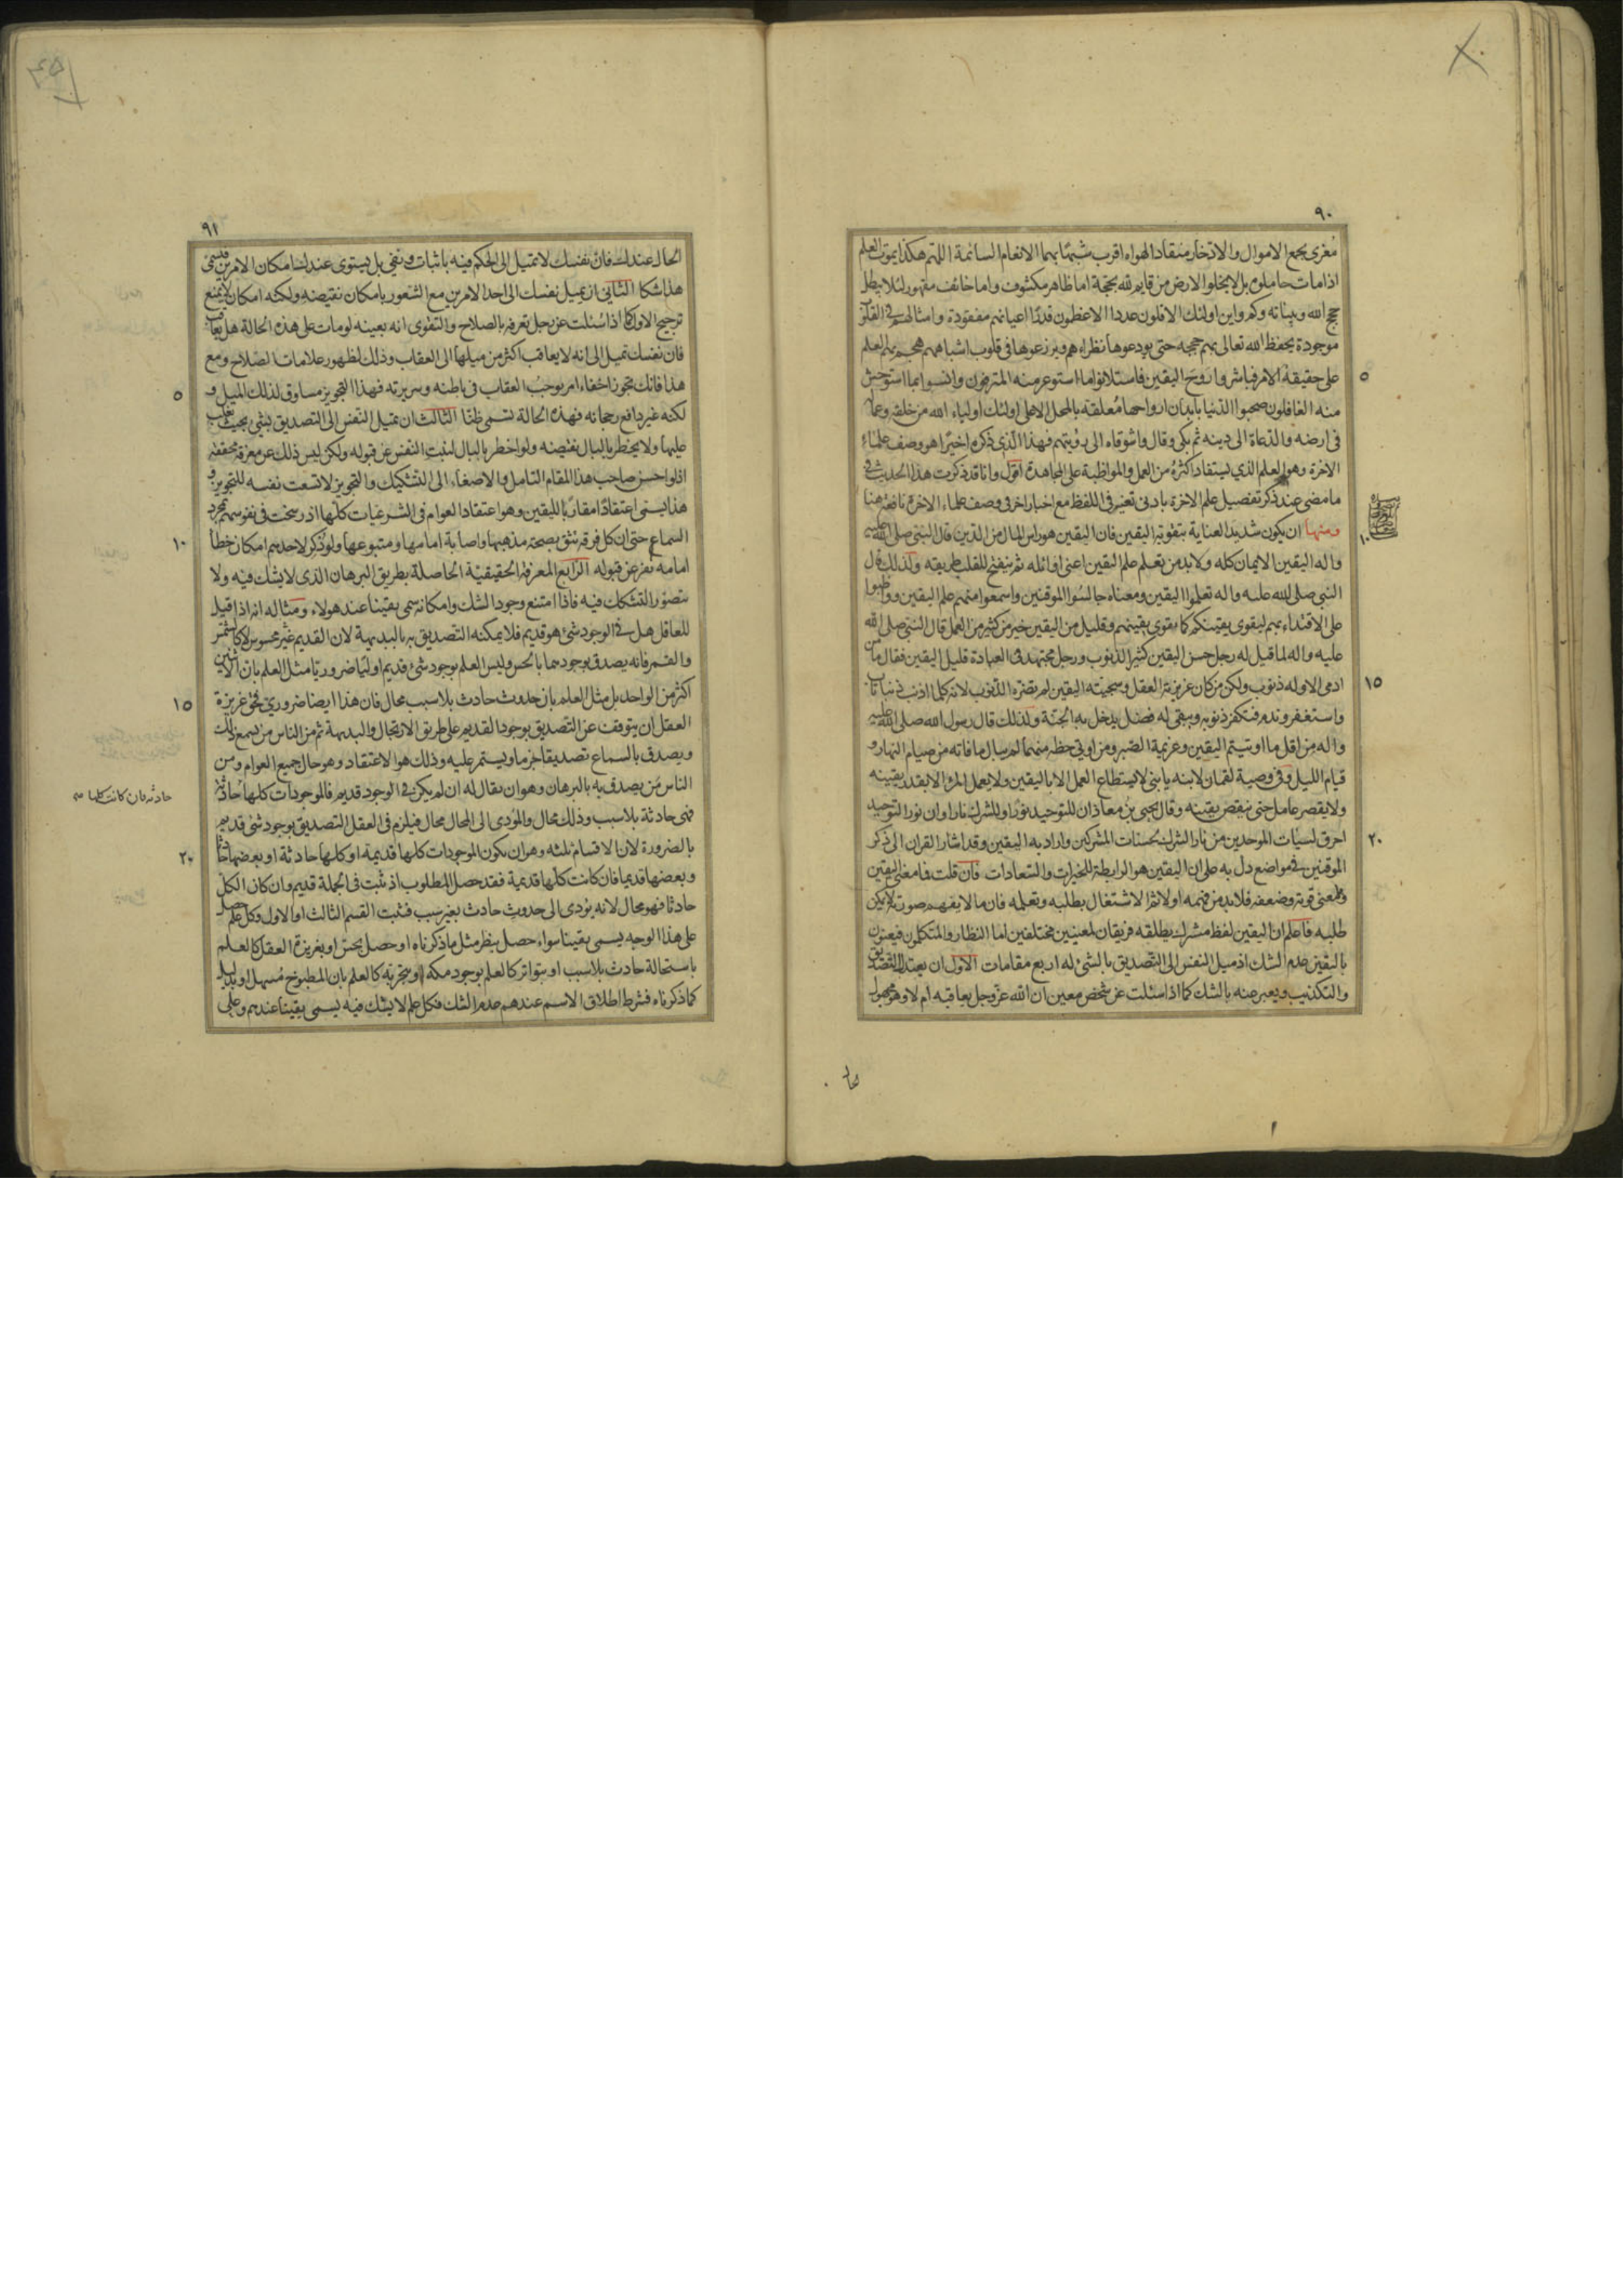 ٩٠
مغرى بجمع الاموال والادخار منقادا لهواه اقرب شبها بهما الانعام السائمة اللهم هكذا يموت العلم
اذا مات حاملوه بل لا يخلوا الارض من قايم لله بحجة اما ظاهر مكشوف واما خائف مقهور لئلا يبطل
حجج الله وبيناته وكم واين اولئك الاقلون عددا الاعظمون قدرا اعيانهم مفقودة وامثالهم فى القلوب
موجودة يحفظ الله تعالى بهم حججه حتى يودعوها نظراءهم ويزرعوها فى قلوب اشباههم هجم بهم العلم
على حقيقة الامر فباشروا روح اليقين فاستلانوا ما استوعر منه المترفون وانسوا بما استوحش
٥
منه الغافلون صحبوا الدنيا بابدان ارواحها معلقة بالمحل الاعلى اولئك اولياء الله من خلقه وعماله
فى ارضه والدعاة الى دينه ثم بكى وقال واشوقاه الى رؤيتهم فهذا الذى ذكره اخيرا هو وصف علماء
الاخرة وهو العلم الذي يستفاد اكثره من العمل والمواظبة على المجاهدة اقول وانا قد ذكرت هذا الحديث فى
ما مضى عند ذكر تفصيل علم الاخرة بادنى تغير فى اللفظ مع اخبار اخر فى وصف علماء الاخرة نافعة هنا
ومنها ان يكون شديد العناية بتقوية اليقين فان اليقين هو راس المال من الدين قال النبى صلى الله عليه
١٠
واله اليقين الايمان كله ولا بد من تعلم علم اليقين اعنى اوائله ثم ينفتح للقلب طريقه ولذلك قال
النبى صلى الله عليه واله تعلموا اليقين ومعناه جالسوا الموقنين واسمعوا منهم علم اليقين وواظبوا
على الاقتداء بهم ليقوى يقينكم كما يقوى يقينهم وقليل من اليقين خير من كثير من العمل قال النبى صلى الله
عليه واله لما قيل له رجل حسن اليقين كثير الذنوب ورجل مجتهد فى العبادة قليل اليقين فقال ما من
ادمى الا وله ذنوب ولكن من كان غريزته العقل وسجيته اليقين لم تضره الذنوب لانه كلما اذنب ذنبا تاب
١٥
واستغفر وندم فتكفر ذنوبه ويبقى له فضل يدخل به الجنة ولذلك قال رسول الله صلى الله عليه
واله من اقل ما اوتيتم اليقين وعزيمة الصبر ومن اوتى حظه منهما لم يبال ما فاته من صيام النهار و
قيام الليل وفى وصية لقمان لابنه يا بنى لا يستطاع العمل الا باليقين ولا يعمل المرؤ الا بقدر يقينه
ولا يقصر عامل حتى ينقص يقينه وقال يحيى بن معاذ ان للتوحيد نورا وللشرك نارا وان نور التوحيد
احرق لسيات الموحدين من نار الشرك لحسنات المشركين واراد به اليقين وقد اشار القران الى ذكر
٢٠
الموقنين فى مواضع دل به على ان اليقين هو الرابطة للخيرات والسعادات فان قلت فما معنى اليقين
وما معنى قوته وضعفه فلا بد من فهمه اولا ثم الاشتغال بطلبه وتعلمه فان ما لا يفهم صورته لا يمكن
طلبه فاعلم ان اليقين لفظ مشترك يطلقه فريقان لمعنيين مختلفين اما النظار والمتكلمون فيعنون
باليقين عدم الشك اذ ميل النفس الى التصديق بالشئ له اربع مقامات الاول ان يعتدل التصديق
والتكذيب ويعبر عنه بالشك كما اذا سئلت عن شخص معين ان الله عز وجل يعاقبه ام لا وهو مجهول
٩١
الحال عندك فان نفسك لا تميل الى الحكم فيه باثبات ونفى بل يستوى عندك امكان الامرين فيسمى
هذا شكا الثانى ان يميل نفسك الى احد الامرين مع الشعور بامكان نقيضه ولكنه امكان لا يمنع
ترجيح الاول كما اذا سئلت عن رجل تعرفه بالصلاح والتقوى انه بعينه لو مات على هذه الحالة هل يعاقب
فان نفسك تميل الى انه لا يعاقب اكثر من ميلها الى العقاب وذلك لظهور علامات الصلاح ومع
هذا فانك تجوز اخفاء امر يوجب العقاب فى باطنه وسريرته فهذا التجويز مساوق لذلك الميل و
٥
لكنه غير دافع رجحانه فهذه الحالة تسمى ظنا الثالث ان تميل النفس الى التصديق بشئ بحيث يغلب
عليها ولا يخطر بالبال نقيضه ولو اخطر بالبال لنبت النفس عن قبوله ولكن ليس ذلك عن معرفة محققة
اذ لو احسن صاحب هذا المقام التامل والاصغاء الى التشكيك والتجويز لاتسعت نفسه للتجويز و
هذا يسمى اعتقادا مقاربا لليقين وهو اعتقاد العوام فى الشرعيات كلها اذ رسخت فى نفوسهم بمجرد
السماع حتى ان كل فرقة تثق بصحة مذهبها واصابة امامها ومتبوعها ولو ذكر لاحدهم امكان خطأ
١٠
امامه نفر عن قبوله الرابع المعرفة الحقيقية الحاصلة بطريق البرهان الذى لا يشك فيه ولا
يتصور التشكك فيه فاذا امتنع وجود الشك وامكانه سمى يقينا عند هولاء ومثاله انه اذا قيل
للعاقل هل فى الوجود شئ هو قديم فلا يمكنه التصديق به بالبديهة لان القديم غير محسوس لا كالشمس
والقمر فانه يصدق بوجودهما بالحس وليس العلم بوجود شئ قديم اوليا ضروريا مثل العلم بان الاثنين
اكثر من الواحد بل مثل العلم بان حدوث حادث بلا سبب محال فان هذا ايضا ضرورى فحق غريزة
١٥
العقل ان يتوقف عن التصديق بوجود القديم على طريق الارتجال والبديهة ثم من الناس من يسمع ذلك
ويصدق بالسماع تصديقا جزما ويستمر عليه وذلك هو الاعتقاد وهو حال جميع العوام ومن
الناس من يصدق به بالبرهان وهو ان يقال له ان لم يكن فى الوجود قديم فالموجودات كلها حادثة
حادثه فان كانت كلها
فهى حادثة بلا سبب وذلك محال والمؤدى الى المحال محال فيلزم فى العقل التصديق بوجود شئ قديم
بالضرورة لان الاقسام ثلثه وهو ان يكون الموجودات كلها قديمة او كلها حادثة او بعضها حادثا
٢٠
وبعضها قديما فان كانت كلها قديمة فقد حصل المطلوب اذ ثبت فى الجملة قديم وان كان الكل
حادثا فهو محال لانه يؤدى الى حدوث حادث بغير سبب فثبت القسم الثالث او الاول وكل علم حصل
على هذا الوجه يسمى يقينا سواء حصل بنظر مثل ما ذكرناه او حصل بحس او بغريزة العقل كالعلم
باستحالة حادث بلا سبب او بتواتر كالعلم بوجود مكة او بتجربة كالعلم بان المطبوخ مسهل او بدليل
كما ذكرناه فشرط اطلاق الاسم عندهم عدم الشك فكل علم لا يشك فيه يسمى يقينا عندهم وعلى